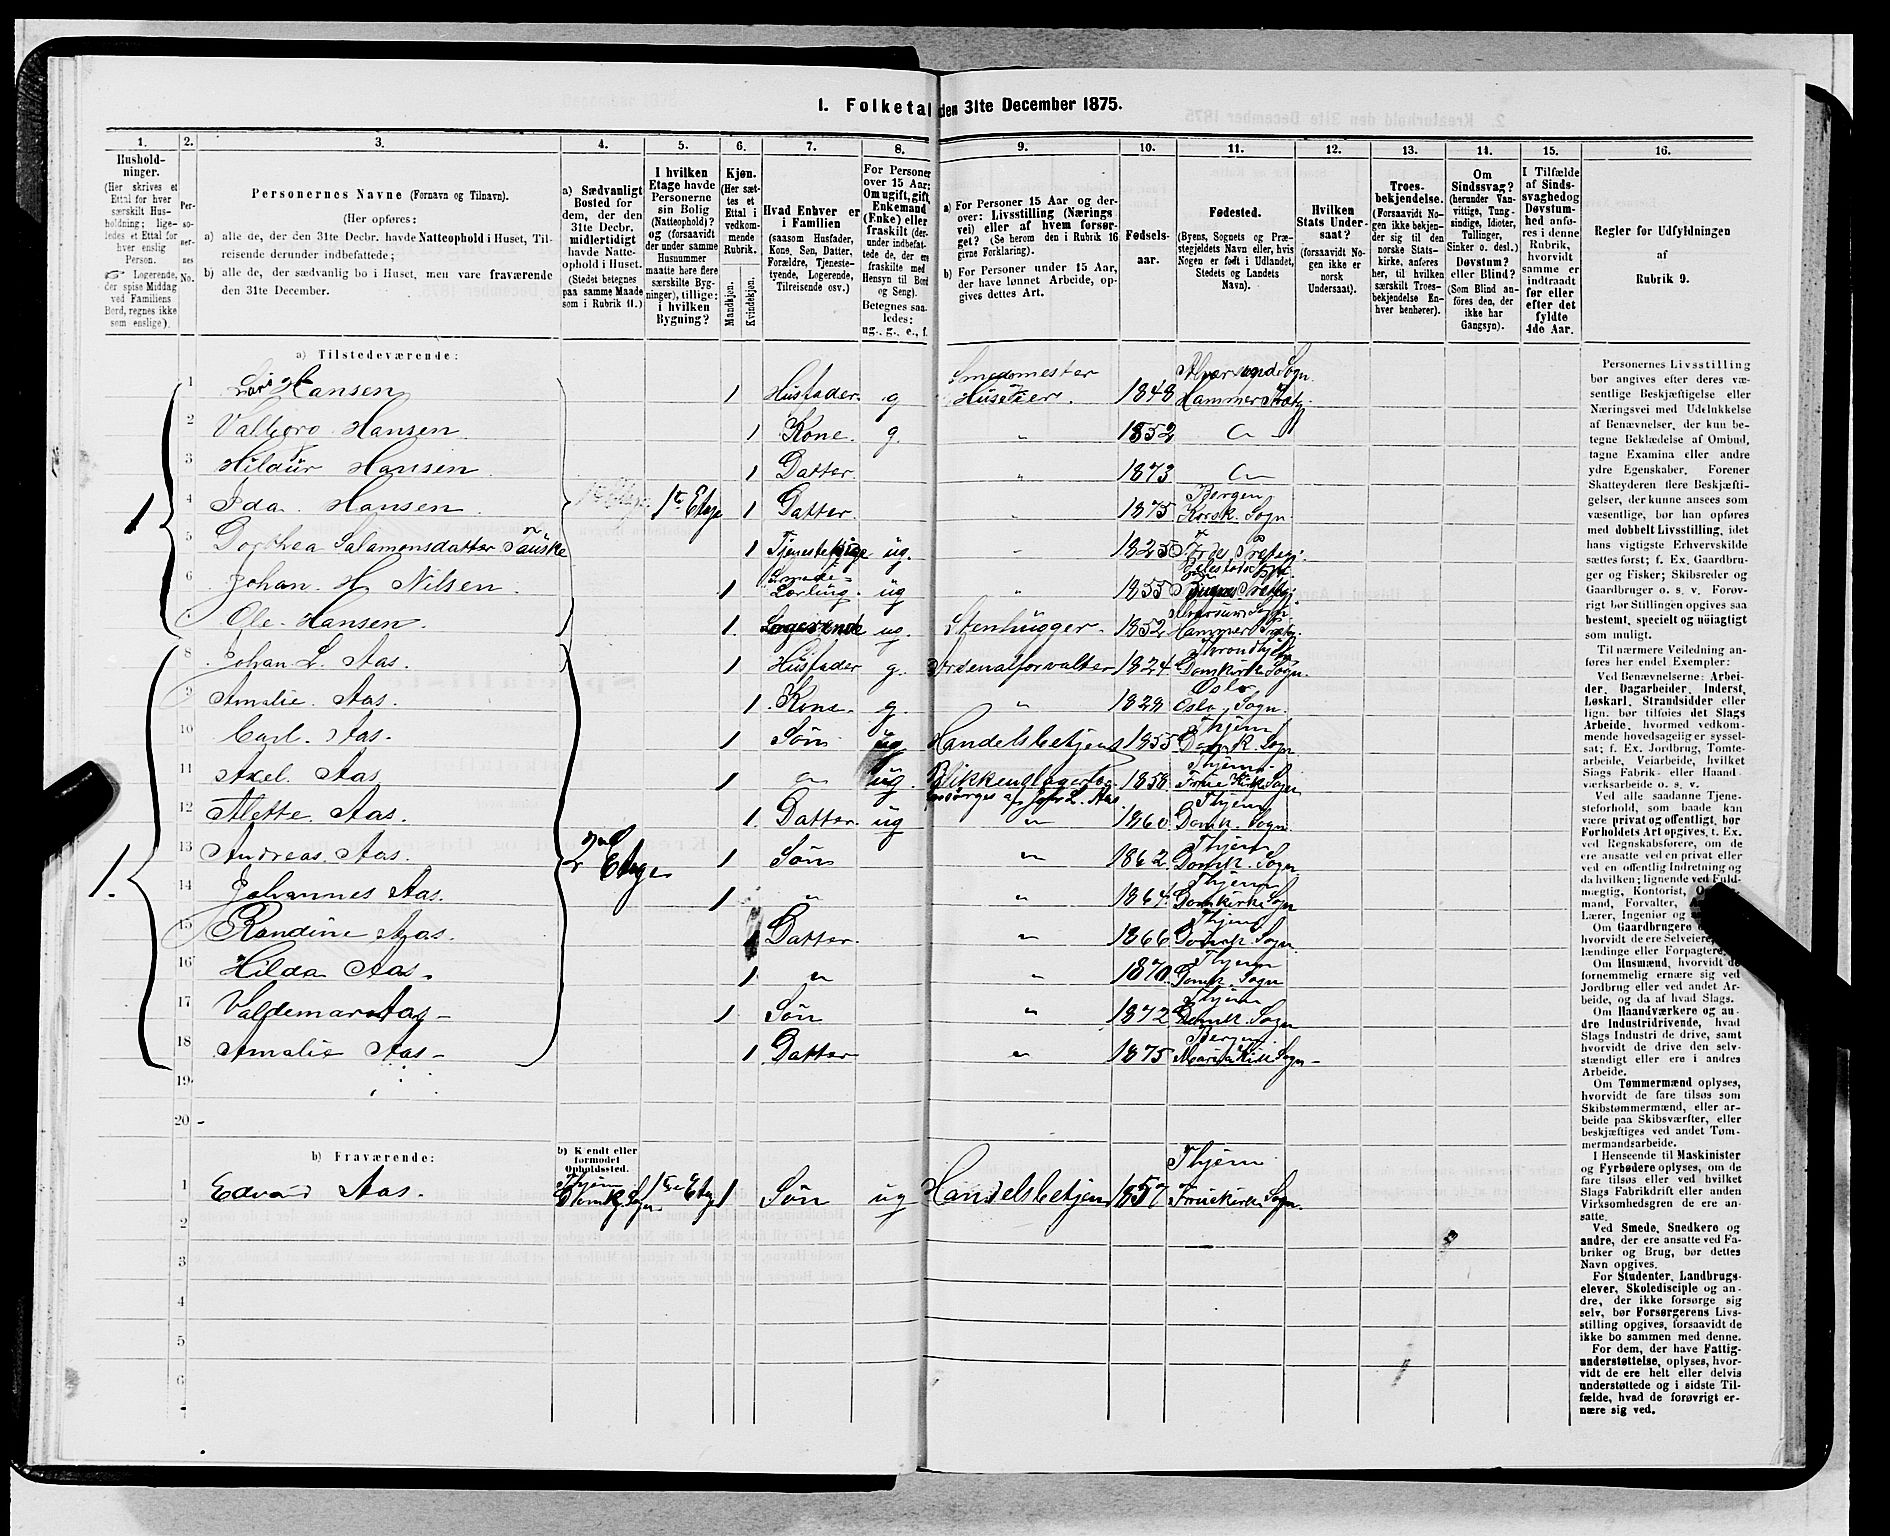 1. Folketal den 31te December 1875.
1. 2. 3. 4. 5. 6. 7. 8. 9. 10. 11. 12. 13. 14. 15. 16.
Hushold-
ninger.
(Her skrives et
Ettal for hver
særskilt Hus-
holdning; lige-
ledes et Ettal for
hver enslig
Person.
☞ Logerende,
der spise Middag
ved Familiens
Bord, regnes ikke
som enslige).
Per-
so-
ner-
nes
No.
Personernes Navne (Fornavn og Tilnavn).
(Her opføres:
a) alle de, der den 31te Decbr. havde Natteophold i Huset, Til-
reisende derunder indbefattede;
b) alle de, der sædvanlig bo i Huset, men vare fraværende
den 31te December.
a) Sædvanligt
Bosted for
dem, der den
31te Decbr.
midlertidigt
havde Natte-
ophold i Huset.
(Stedet betegnes
paa samme Maade
som i Rubrik 11.)
I hvilken
Etage havde
Personerne
sin Bolig
(Natteophold)?
og (forsaavidt
der under samme
Husnummer
maatte høre flere
særskilte Byg-
ninger), tillige:
i hvilken
Bygning?
Kjøn.
(Her sæt-
tes et
Ettal i
vedkom-
mende
Rubrik.
Mandkjøn.
Kvindekjøn.
Hvad Enhver er
i Familien
(saasom Husfader,
Kone, Søn, Datter,
Forældre, Tjeneste-
tyende, Logerende,
Tilreisende osv.)
For Personer
over 15 Aar:
Om ugift, gift,
Enkemand
(Enke) eller
fraskilt (der-
under indbefat-
tede de, der ere
fraskilte med
Hensyn til Bord
og Seng).
Betegnes saa-
ledes:
ug., g., e., f.
a) For Personer 15 Aar og der-
over: Livsstilling (Nærings
vei) eller af hvem forsør-
get? (Se herom den i Rubrik 16
givne Forklaring).
b) For Personer under 15 Aar,
der have lønnet Arbeide, op-
gives dettes Art.
Fødsels-
aar.
Fødested.
(Byens, Sognets og Præ-
stegjeldets Navn eller, hvis
Nogen er født i Udlandet,
Stedets og Landets
Navn).
Hvilken
Stats Under-
saat?
(forsaavidt No-
gen ikke er
norsk
Undersaat).
Troes-
bekjendelse.
(Forsaavidt No-
gen ikke bekjen-
der sig til den
norske Stats-
kirke, anføres
her, til hvilken
særskilt Troes-
bekjendelse En-
hver henhører).
Om
Sindssvag?
(herunder Van-
vittige, Tung-
sindige, Idioter,
Tullinger,
Sinker o. desl.)
Døvstum?
eller Blind?
(Som Blind an-
føres den, der
ikke har
Gangsyn).
I Tilfælde
af Sinds-
svaghed og
Døvstum-
hed anfø-
res i denne
Rubrik,
hvorvidt
samme er
indtraadt
før eller
efter det
fyldte
4de Aar.
Regler for Udfyldningen
af
Rubrik 9.
a) Tilstedeværende:
1 Lars H Hansen 1 Husfader. g Smedemester Huseier. 1848 Alversund Sogn. Hammer Præstg.
2 Valborg Hansen 1 Kone. g. " 1852
3 Hildur Hansen 1 Datter " 1873
1 4 Ida Hansen 1ste Etage 1 Datter. 1875 Bergen Korsk. Sogn.
5 Dorthea Salamonsdatter 1 Tjenestepige ug. " 1825 Førde Præstegj.
6 Johan H Nilsen 1 Smede-Lærling. ug " 1855
7 Ole Hansen. 1. Logerende ug. Stenhugger. 1852 Hammer Præstg.
8 Johan L. Aas. 1 Husfader g. Arsenalforvalter 1824 Throndhjem Domkirke Sogn.
9 Amalie. Aas. 1 Kone. g. " 1828 Oslo Oslo Sogn.
10 Carl. Aas. 1 Søn ug Handelsbetjent 1855 Thjem Domk. Sogn
11 Axel. Aas 1 ug. 1858. Thjem Fruekirke Sogn
forsørges af Joh. L. Aas.
12 Alette. Aas. 1. Datter. ug " 1860. Thjem Domk. Sogn
13 Andreas. Aas. 1 Søn " 1862 Thjem Domk. Sogn
1. 2den Etage
14 Johannes Aas. 1 " " 1864. Thjem Domkirke Sogn
15 Randine Aas. 1 Datter. " 1866 Thjem Domk Sogn
16 Hilda Aas. 1 " " 1870. Thjem Domk. Sogn
17 Valdemar Aas 1 Søn " 1872 Thjem Domk. Sogn
18 Amalie Aas 1 Datter " 1875 Bergen Maria Kirke Sogn
19
20
b) Fraværende:
b) Kjendt eller
formodet
Opholdssted.
1 Edvard Aas. Thjem Domk. Sogn 1ste Etage 1 Søn ug Handelsbetjent 1857 Thjem Fruekirke Sogn.
2
3
4
5
6
7
Personernes Livsstilling
bør angives efter deres væ-
sentlige Beskjæftigelse eller
Næringsvei med Udelukkelse
af Benævnelser, der kun be-
tegne Beklædelse af Ombud,
tagne Examina eller andre
ydre Egenskaber. Forener
Skatteyderen flere Beskjæfti-
gelser, der kunne ansees som
væsentlige, bør han opføres
med dobbelt Livsstilling, idet
hans vigtigste Erhvervskilde
sættes først; f. Ex. Gaardbru-
ger og Fisker; Skibsreder og
Gaardbruger o. s. v. Forøv-
rigt bør Stillingen opgives saa
bestemt, specielt og nöiagtigt
som muligt.
Til nærmere Veiledning an-
føres her endel Exempler:
Ved Benævnelserne: Arbei-
der, Dagarbeider, Inderst,
Løskarl, Strandsidder eller
lign. bør tilføies det Slags
Arbeide, hvormed vedkom-
mende hovedsagelig er syssel-
sat; f. Ex. Jordbrug, Tomte-
arbeide, Veiarbeide, hvilket
Slags Fabrik- eller Haand-
værksarbeide o. s. v.
Ved alle saadanne Tjene-
steforhold, som baade kan
være privat og offentligt, bør
Forholdets Art opgives, t. Ex.
ved Regnskabsførere, om de
ere ansatte ved en privat eller
ved en offentlig Indretning og
da hvilken; lignende ved Fuld-
mægtig, Kontorist,
mand, Forvalter,
Lærer, Ingeniør og
Om Gaardbrugere
hvorvidt de ere Selveiere,
lændinge eller Forpagtere.
Om Husmænd, hvorvidt de
fornemmelig ernære sig ved
Jordbrug eller ved andet Ar-
beide, og da af hvad Slags.
Om Haandværkere og an-
dre Industridrivende, hvad
Slags Industri de drive, samt
hvorvidt de drive den selv-
stændigt eller ere i andres
Arbeide.
Om Tømmermænd oplyses,
hvorvidt de fare tilsøs som
Skibstømmermænd, eller ar-
beide paa Skibsværfter, eller
beskjæftiges ved andet Tøm-
mermandsarbeide.
I Henseende til Maskinister
og Fyrbødere oplyses, om de
fare tilsøs eller ved hvilket
Slags Fabrikdrift eller anden
Virksomhedsgren de ere an-
satte.
Ved Smede, Snedkere og
andre, der ere ansatte ved Fa-
briker og Brug, bør dettes
Navn opgives.
For Studenter, Landbrugs-
elever, Skoledisciple og an-
dre, der ikke forsørge sig
selv, bør Forsørgerens Livs-
stilling opgives, forsaavidt de
ikke bo sammen med denne.
For dem, der have Fattig-
understøttelse, oplyses, hvor-
vidt de ere helt eller delvis
understøttede og i sidste Til-
fælde, hvad de forøvrigt er-
nære sig ved.